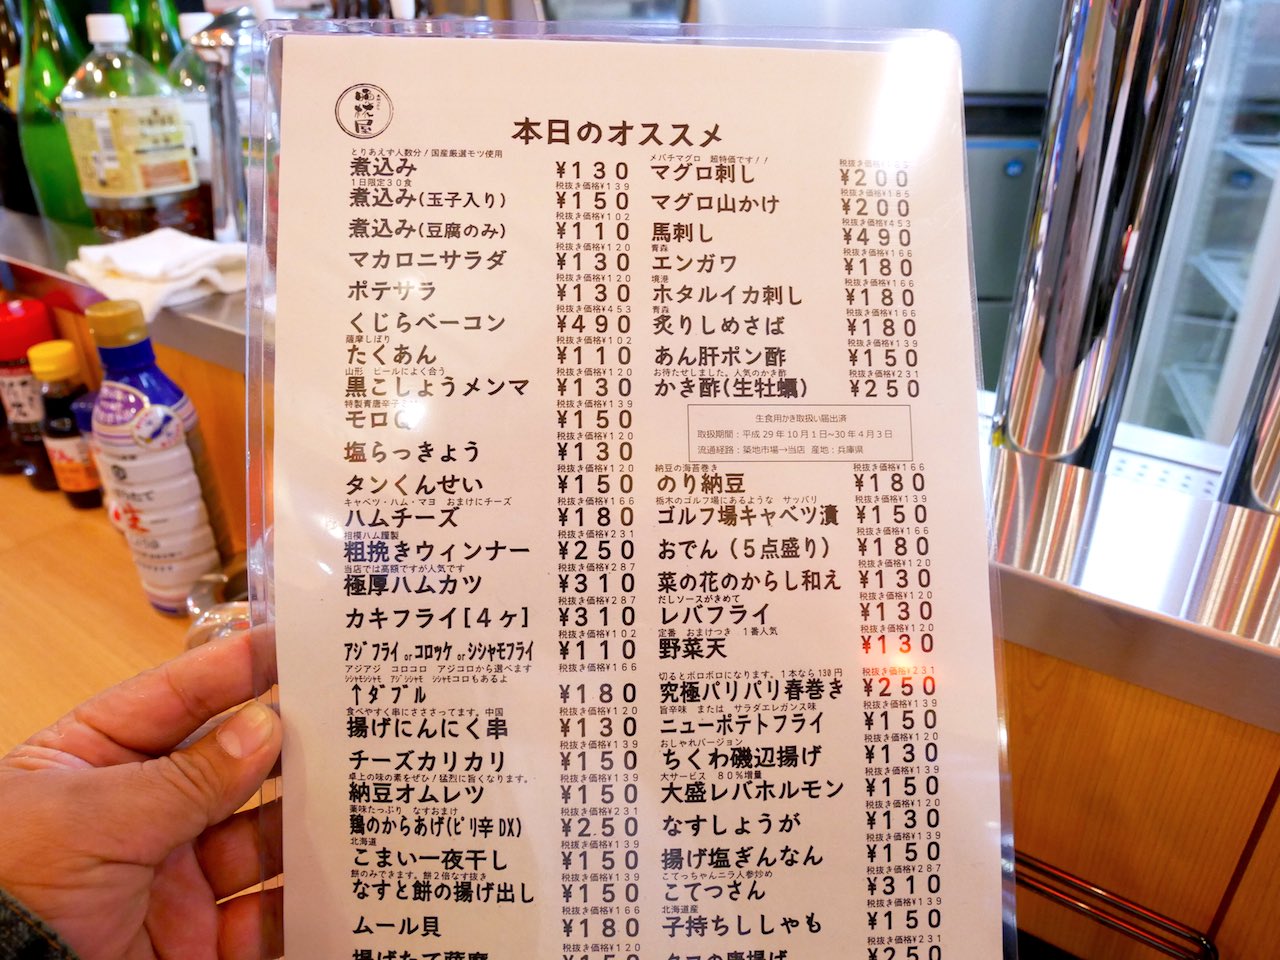 本日のオススメ
とりあえず人数分！国産厳選モツ使用
煮込み ¥130
1日限定30食 税抜き価格¥139
煮込み(玉子入り) ¥150
税抜き価格¥102
煮込み(豆腐のみ) ¥110
税抜き価格¥120
マカロニサラダ ¥130
税抜き価格¥120
ポテサラ ¥130
税抜き価格¥453
くじらベーコン ¥490
薩摩しぼり 税抜き価格¥102
たくあん ¥110
山形 ビールによく合う 税抜き価格¥120
黒こしょうメンマ ¥130
特製青唐辛子 税抜き価格¥139
モロQ ¥150
税抜き価格¥120
塩らっきょう ¥130
税抜き価格¥139
タンくんせい ¥150
キャベツ・ハム・マヨ おまけにチーズ 税抜き価格¥166
ハムチーズ ¥180
相模ハム謹製 税抜き価格¥231
粗挽きウィンナー ¥250
当店では高額ですが人気です 税抜き価格¥287
極厚ハムカツ ¥310
税抜き価格¥287
カキフライ[4ヶ] ¥310
税抜き価格¥102
アジフライorコロッケorシシャモフライ ¥110
アジアジ コロコロ アジコロから選べます 税抜き価格¥166
シシャモシシャモ アジシシャモ シシャモコロもあるよ
↑ダブル ¥180
食べやすく串にさささってます。中国 税抜き価格¥120
揚げにんにく串 ¥130
税抜き価格¥139
チーズカリカリ ¥150
卓上の味の素をぜひ！猛烈に旨くなります。 税抜き価格¥139
納豆オムレツ ¥150
薬味たっぷり なすおまけ 税抜き価格¥231
鶏のからあげ(ピリ辛DX) ¥250
北海道 税抜き価格¥139
こまい一夜干し ¥150
餅のみできます。餅2倍なす抜き 税抜き価格¥139
なすと餅の揚げ出し ¥150
税抜き価格¥166
ムール貝 ¥180
税抜き価格¥120
揚げたて薩摩
メバチマグロ 超特価です！！
マグロ刺し ¥200
税抜き価格¥185
マグロ山かけ ¥200
税抜き価格¥453
馬刺し ¥490
青森 税抜き価格¥166
エンガワ ¥180
境港 税抜き価格¥166
ホタルイカ刺し ¥180
青森 税抜き価格¥166
炙りしめさば ¥180
あん肝ポン酢 ¥150
お待たせしました。人気のかき酢 税抜き価格¥231
かき酢(生牡蠣) ¥250
生食用かき取扱い届出済
取扱期間：平成29年10月1日~30年4月3日
流通経路：築地市場→当店 産地：兵庫県
納豆の海苔巻き 税抜き価格¥166
のり納豆 ¥180
栃木のゴルフ場にあるような サッパリ 税抜き価格¥139
ゴルフ場キャベツ漬 ¥150
税抜き価格¥166
おでん(5点盛り) ¥180
税抜き価格¥120
菜の花のからし和え ¥130
だしソースがきめて 税抜き価格¥120
レバフライ ¥130
定番 おまけつき 1番人気 税抜き価格¥120
野菜天 ¥130
切るとボロボロになります。1本なら130円 税抜き価格¥231
究極パリパリ春巻き ¥250
旨辛味 または サラダエレガンス味 税抜き価格¥139
ニューポテトフライ ¥150
おしゃれバージョン 税抜き価格¥120
ちくわ磯辺揚げ ¥130
大サービス 80%増量 税抜き価格¥139
大盛レバホルモン ¥150
税抜き価格¥120
なすしょうが ¥130
税抜き価格¥139
揚げ塩ぎんなん ¥150
こてっちゃんニラ人参炒め 税抜き価格¥287
こてつさん ¥310
北海道産 税抜き価格¥139
子持ちししゃも ¥150
税抜き価格¥231
タコの唐揚げ ¥250